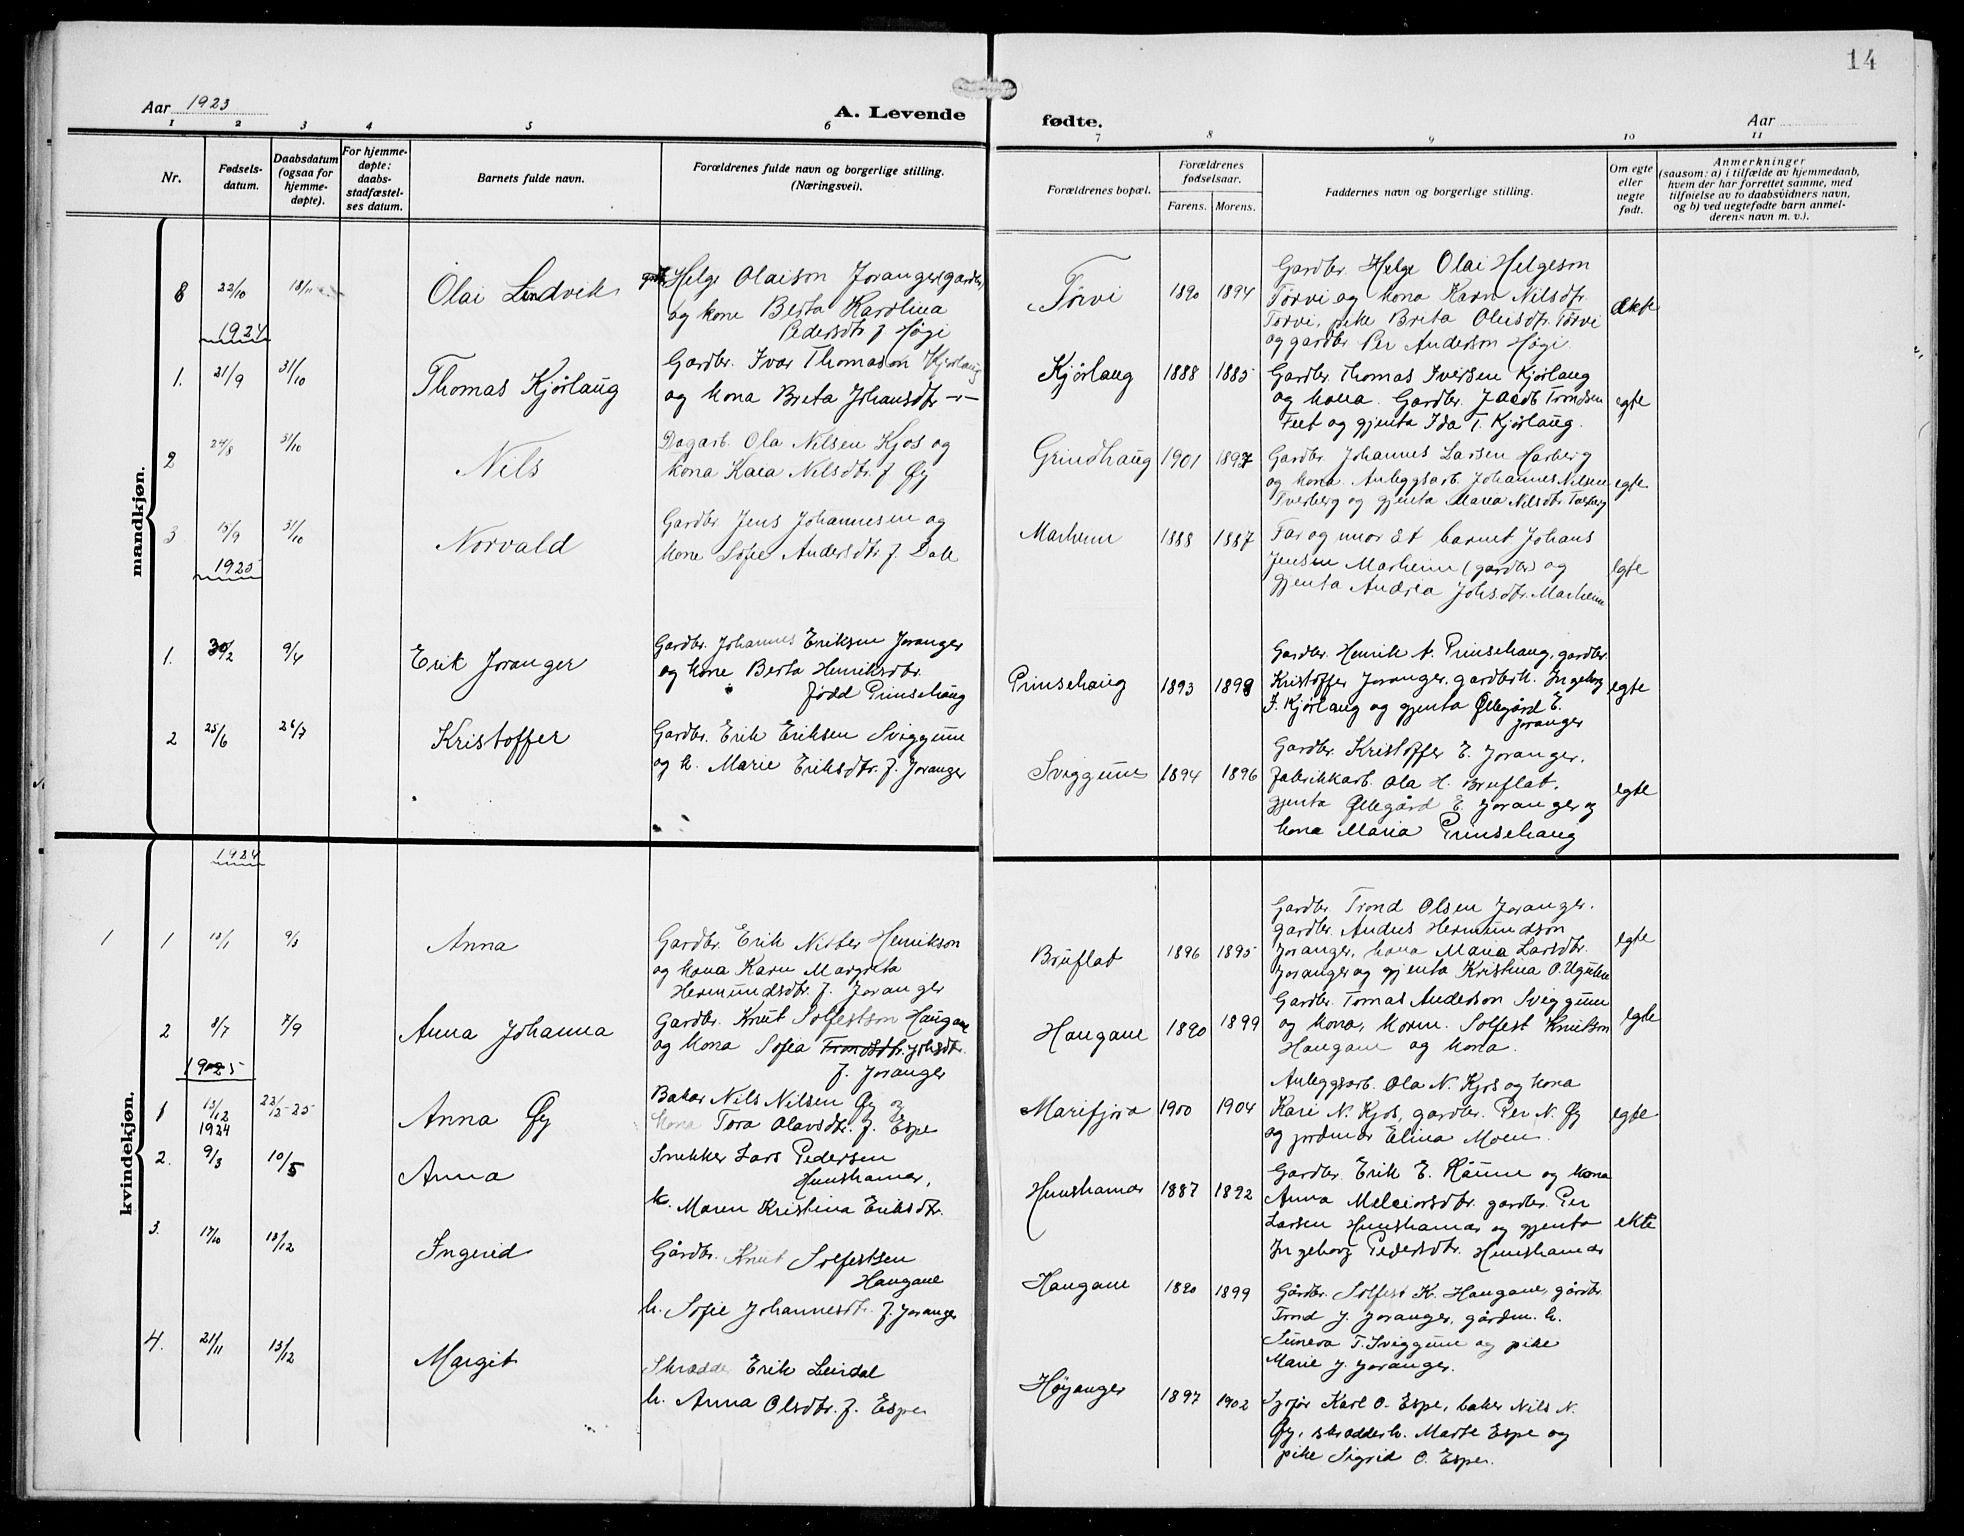 14
Aar 1923
A. Levende
fødte.
Aar
1 2 3 4 5 6 7 8 9 10 11
Nr.
Fødsels-
datum.
Daabsdatum
(ogsaa for
hjemme-
døpte).
For hjemme-
døpte:
daabs-
stadfæstel-
ses datum.
Barnets fulde navn.
Forældrenes fulde navn og borgerlige stilling.
(Næringsvei).
Forældrenes bopæl.
Forældrenes
fødselsaar.
Farens. Morens.
Faddernes navn og borgerlige stilling.
Om egte
eller
uegte
født.
Anmerkninger
(saasom: a) i tilfælde av hjemmedaab,
hvem der har forrettet samme, med
tilføielse av to daabsvidners navn,
og b) ved uegtefødte barn anmel-
derens navn m. v.).
mandkjøn.
8 22/10 18/11 Olai Lindvik
Helge Olaison Joranger (gardbr)
og kone Berta Karolina
Pedersdtr f Høgi
Tørvi 1890 1894
Gardbr. Helge Olai Helgeson
Tørvi og kona Karn Nilsdtr.
Tørvi, pike Brita Olaisdtr. Tørvi
og gardbr Per Anderson Høgi.
ækte
1924
1. 21/9 31/10 Thomas Kjørlaug
Gardbr. Ivar Thomason Kjørlaug
og kona Breta Johansdtr -"-
Kjørlaug 1888 1885
Gardbr. Thomas Iversen Kjørlaug
og kona. Gardbr. Jacob Trondsen
Feet og gjenta Ida T. Kjørlaug.
egte
2 24/8 31/10 Nils
Dagarb. Ola Nilsen Kjos og
kona Kara Nilsdtr. f Øy
Grindhaug 1901 1897
Gardbr. Johannes Larsen Harberg
og kona. Anleggsarb. Johannes Nilsen
Tverberg og gjenta Maria Nilsdtr. Tverberg
egte
3 15/9 31/10 Norvald
Gardbr Jens Johannesen og
kone Sofie Andersdtr f. Dale
Marheim 1888 1887
Far og mor åt barnet Johans
Jensen Marheim (gardbr) og
gjenta Andrea Johs.dtr. Marheim
egte
1925
1. 30/2 9/4 Erik Joranger
Gardbr. Johannes Eriksen Joranger
og kone Berta Henriksdtr.
fødd Prinsehaug
Prinsehaug 1893 1898
Gardbr. Henrik A. Prinsehaug, gardbr.
Kristoffer Joranger, gardbrk. Ingeborg
I. Kjørlaug og gjenta Øllegård E.
Joranger
egte
2 25/6 26/7 Kristoffer
Gardbr. Erik Eriksen Sviggum
og k. Marie Eriksdtr. f. Joranger
Sviggum 1894 1896
Gardbr. Kristoffer E. Joranger.
fabrikkarb. Ola H. Bruflat,
gjenta Øllegård E. Joranger og
kona Maria Prinsehaug
egte
kvindekjøn.
1924
1 1 13/1 9/3 Anna
Gardbr. Erik Nitter Henrikson
og kona Karn Margreta
Hermundsdtr. f. Joranger
Bruflat 1896 1895
Gardbr. Trond Olsen Joranger.
gardbr. Andris Hermundson
Joranger, kona Maria Larsdtr.
Joranger og gjenta Kristina O. Ugulen
egte
2 8/7 7/9 Anna Johanna
Gardbr. Knut Solfestson Haugane
og kona Sofia Trondsdtr. Johsdtr.
f. Joranger
Haugane 1890 1899
Gardbr. Tomas Anderson Sviggum
og kona, Korm. Solfest Knutson
Haugane og kona.
egte
1925
1 13/12 1924 22/2-25 Anna Øy
Bakar Nils Nilsen Øy og
kona Tora Olavsdtr. f. Espe
Marifjøra 1900 1904
Anleggsarb. Ola N. Kjos og kona
Kari N. Kjos, gardbr. Per N. Øy
og jordmor Elina Moen.
egte
2. 9/3 10/5 Anna
Snekker Lars Pedersen
Hunshamar,
k. Maren Kristina Eriksdtr.
Hunshamar 1887 1892
Gardbr. Erik E. Råum og kona
Anna Melciorsdtr. gardbr. Per
Larsen Hunshamar og gjenta
Ingeborg Pedersdtr. Hunshamar
ekte
3. 17/10 13/12 Ingerid
Gårdbr. Knut Solfestsen
Haugane
k. Sofie Johannesdtr. f. Joranger
Haugane 1890 1899
Gårdbr. Solfest K. Haugane, gårdbr.
Trond J. Joranger, gårdm. k.
Suneva T. Sviggum og pike
Marie J. Joranger.
4. 21/11 13/12 Margit
Skradder Erik Leirdal
k. Anna Olsdtr. f. Espe
Høyanger 1897 1902
Sjofør Karl O. Espe, baker Nils N.
Øy, skradderk. Marte Espe og
pike Sigrid O. Espe.